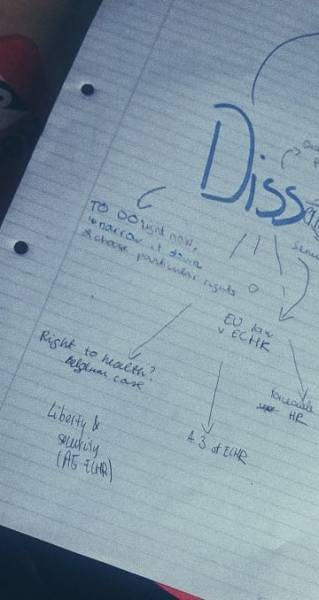 Diss
TO DO right now,
to narrow it down
& choose particular rights
EU law
v ECHR
Right to health?
Belgium case
HR
A 3 of ECHR
Liberty &
security
(A5 ECHR)